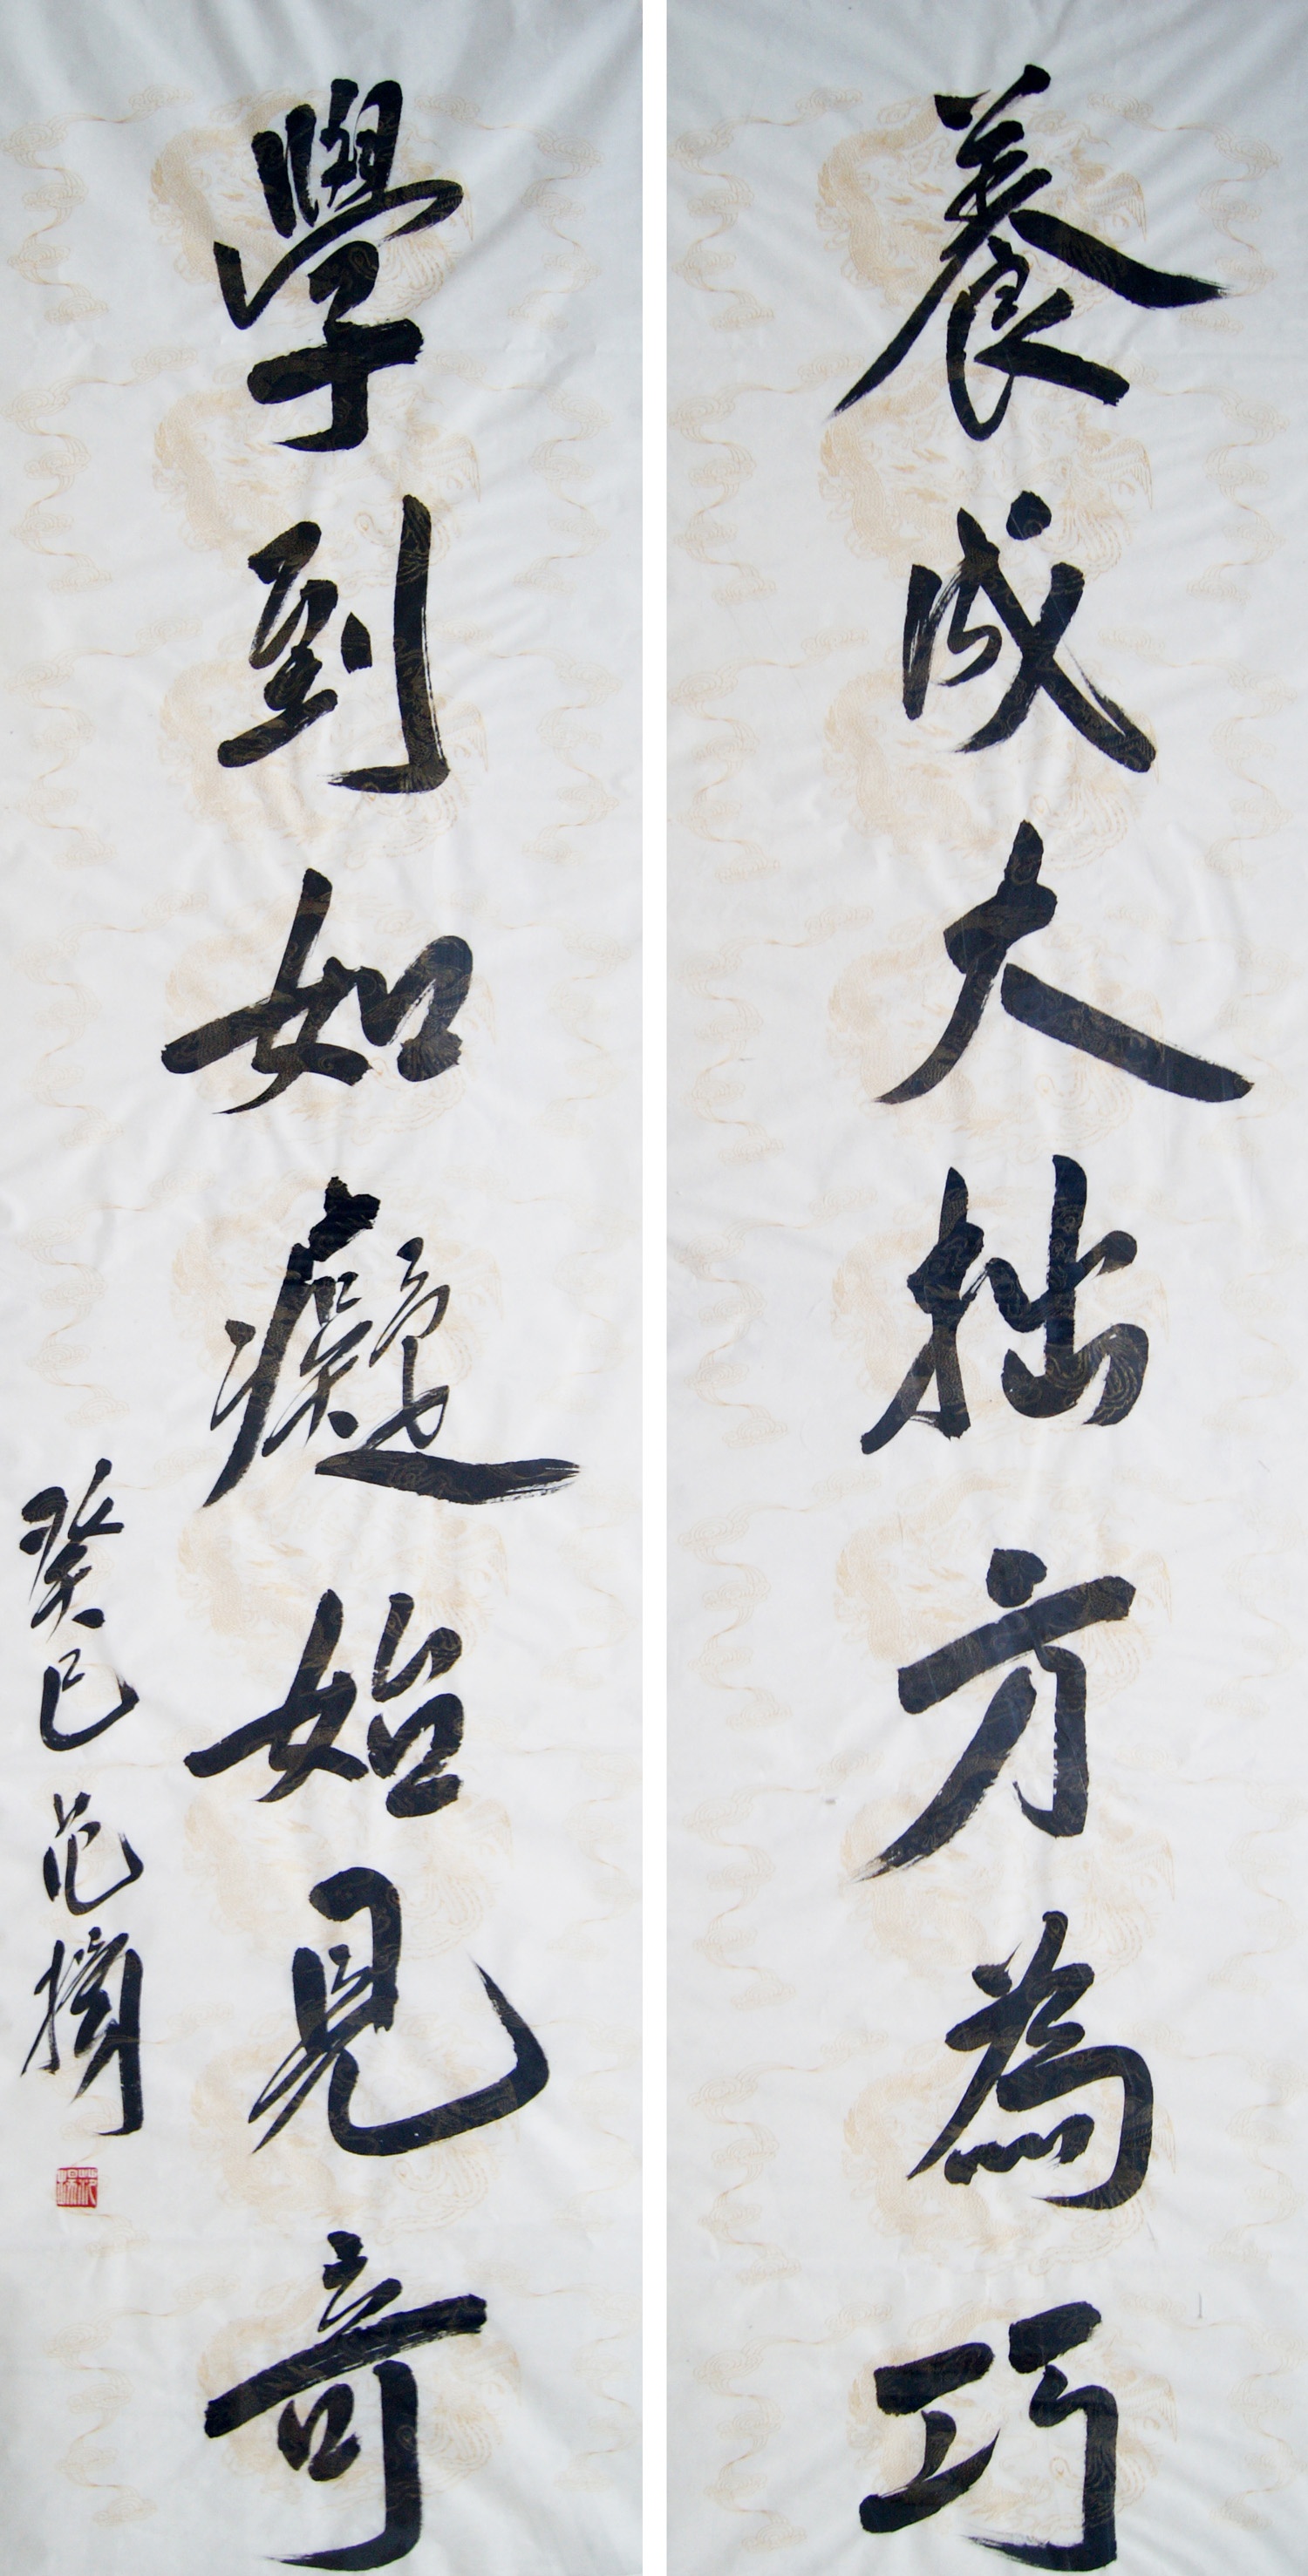 養成大拙方為巧
學到如癡始見奇
癸巳 范揚